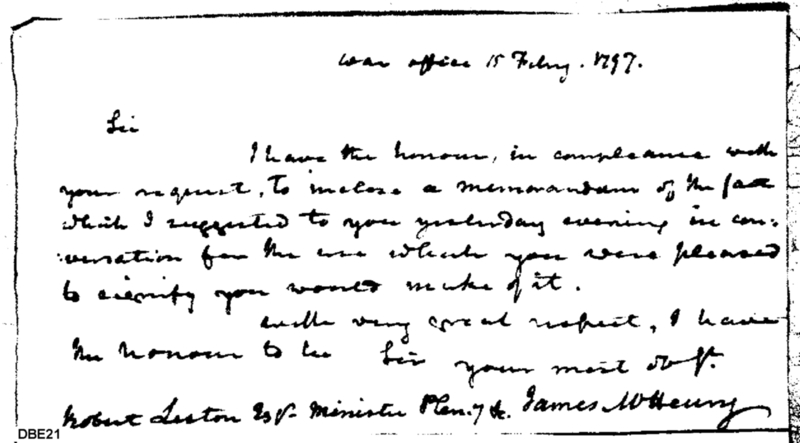 War office 15 Feby. 1797.
Sir
I have the honour, in compleance with
your request, to inclose a memorandum of the fact
which I suggested to you yesterday evening in con:
:versation for the use which you were pleased
to signify you would make of it.
with very great respect, I have
the honour to be Sir your most obSt.
Robert Liston Esqr. Minister Plen.y &c. James McHenry
DBE21